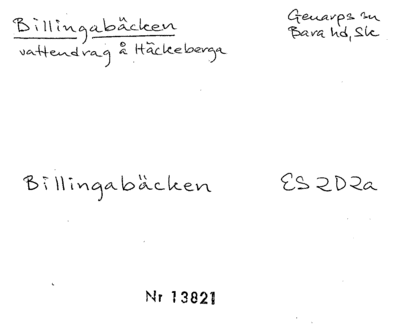 Billingabäcken
vattendrag å Häckeberga
Genarps sn
Bara hd, Sk
Billingabäcken
ES 2D2a
Nr 13821